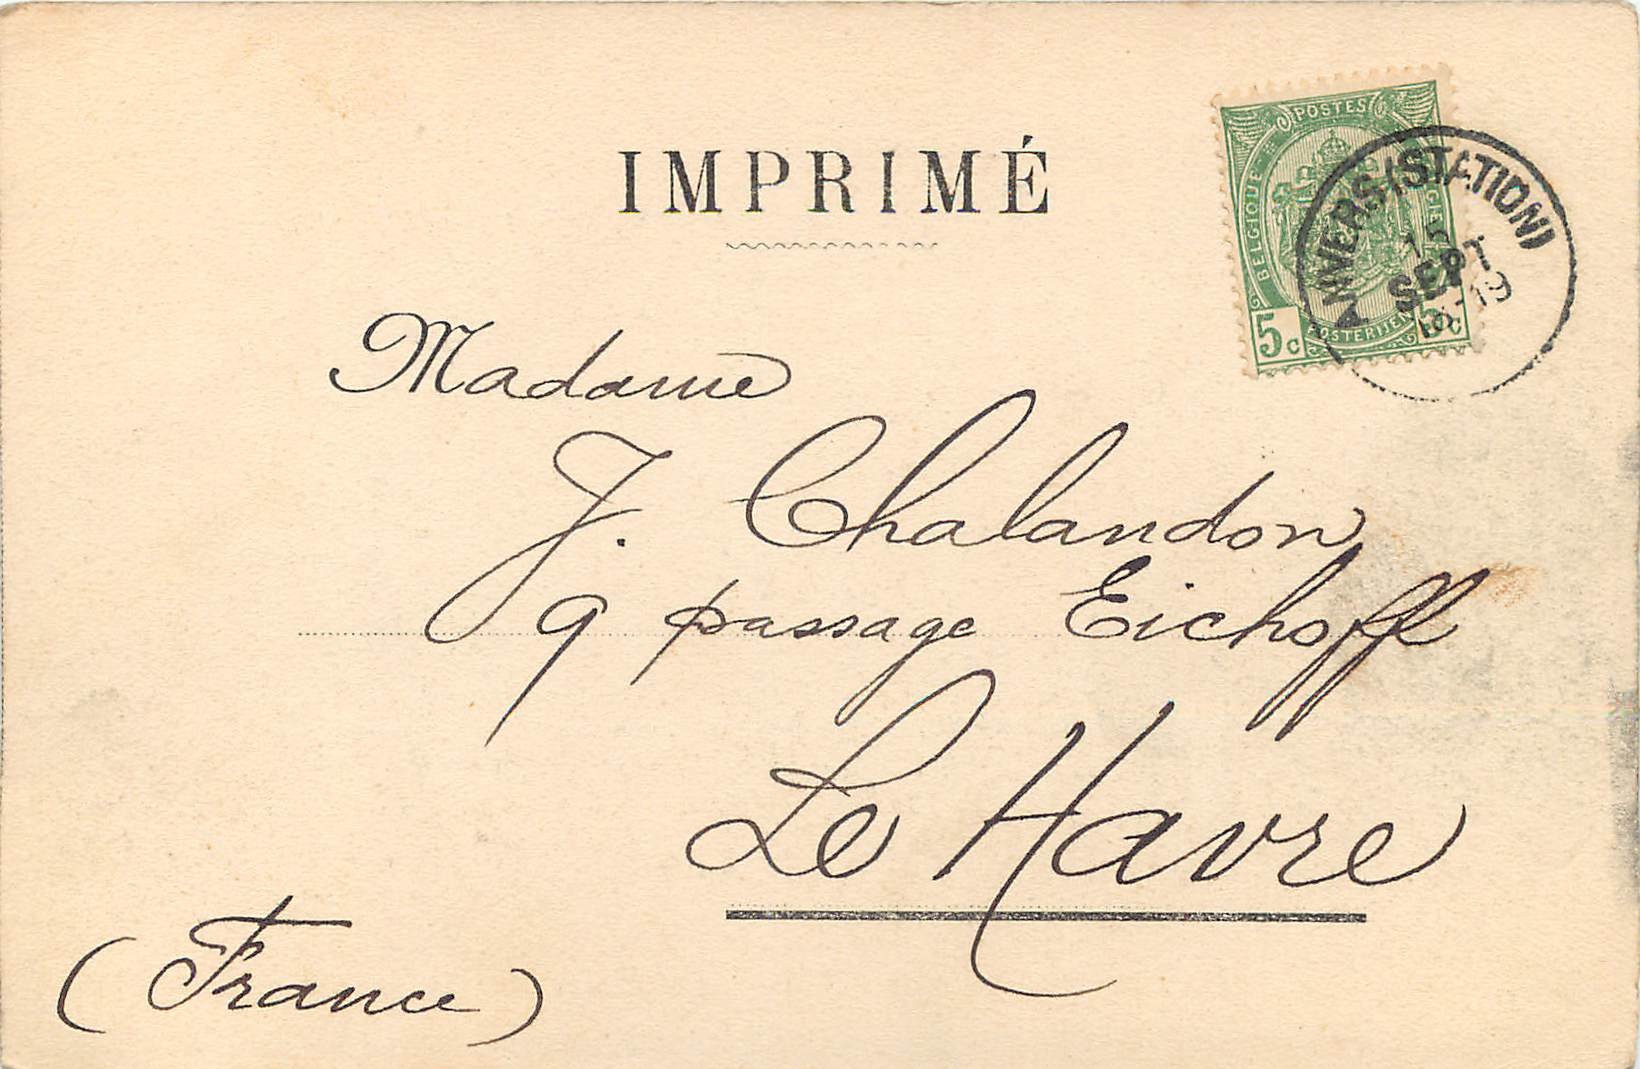 IMPRIMÉ
POSTES
BELGIQUE
5c
POSTERIJEN
5c
ANVERS (STATION)
15
SEPT
18-19
Madame
J. Chalandon
9 passage Eichoff
Le Havre
(France)